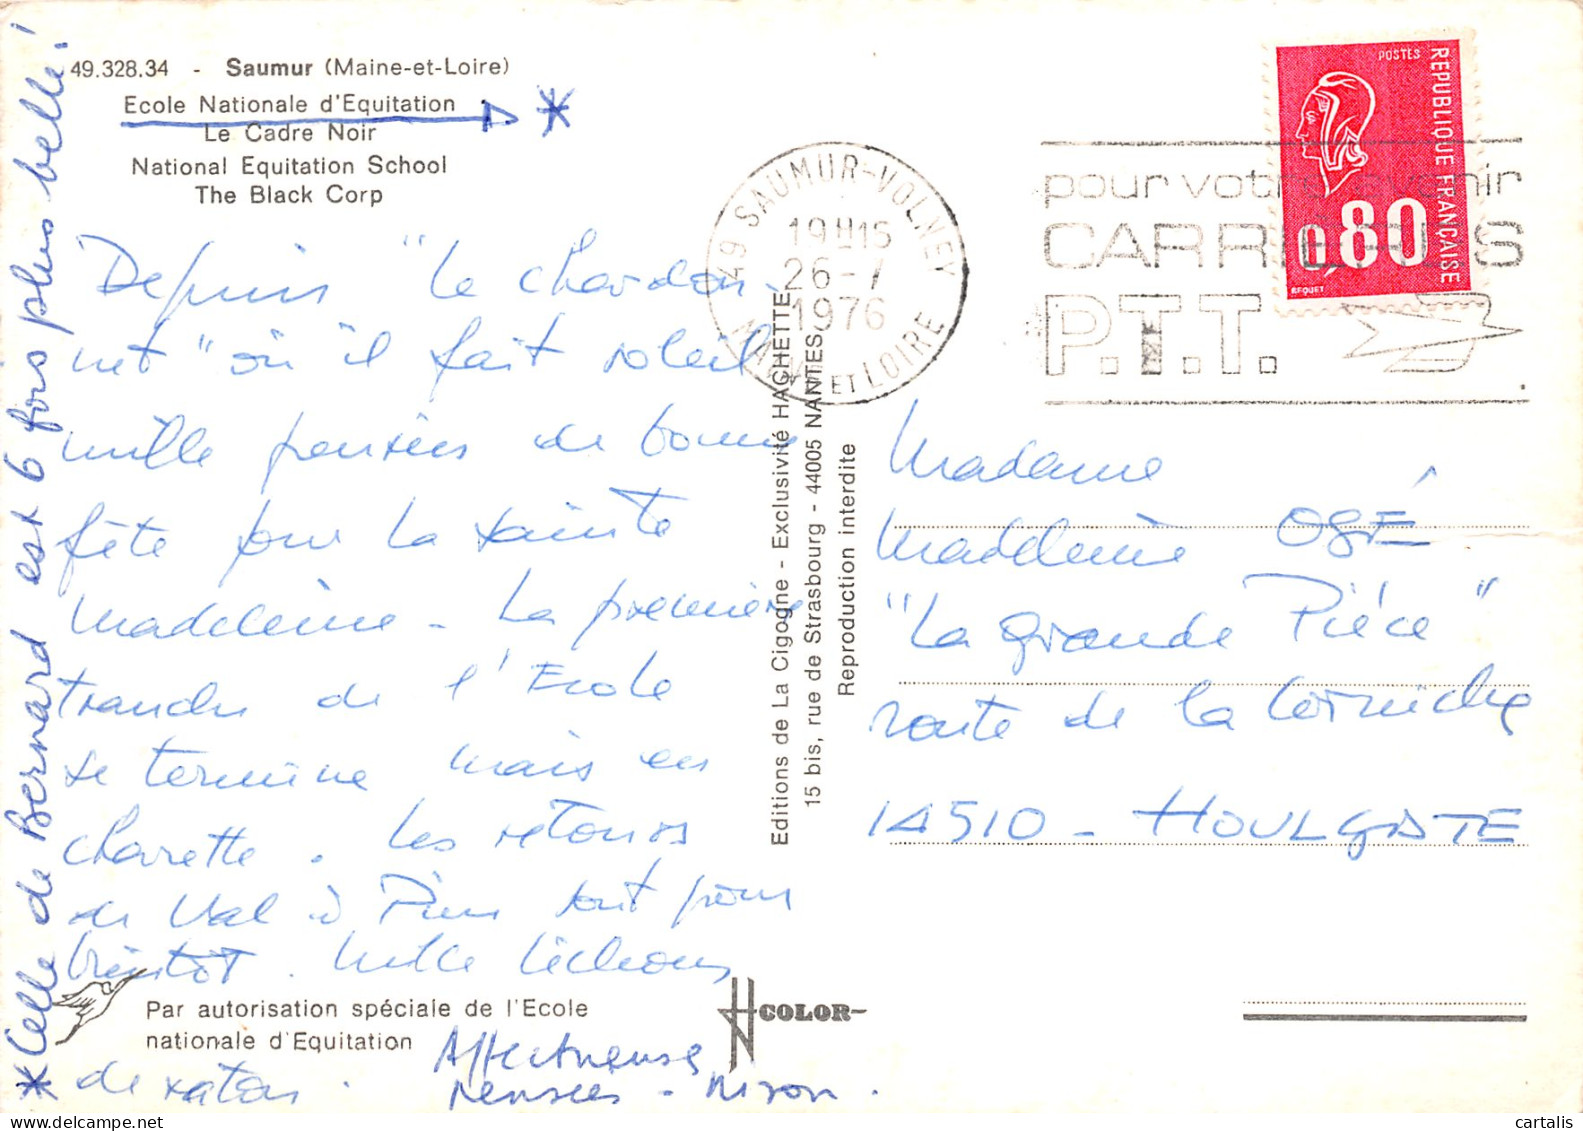 49.328.34 - Saumur (Maine-et-Loire)
Ecole Nationale d'Equitation
Le Cadre Noir
National Equitation School
The Black Corp
Depuis "le chardon-
net" où il fait soleil
mille pensées de bonne
fête pour la sainte
Madeleine - La première
tranche de l'Ecole
se termine mais en
charette. Les retours
de Val à sont pour
bientôt. Mille léchous
de
Affectueuses
pensées -
* Celle de Bernard est 6 fois plus belle!
Par autorisation spéciale de l'Ecole
nationale d'Equitation
COLOR
Editions de La Cigogne - Exclusivité HACHETTE
15 bis, rue de Strasbourg - 44005 NANTES
Reproduction interdite
49 SAUMUR-VOLNEY
19H15
26-7
1976
MAINE ET LOIRE
pour votre avenir
CARRIERES
P.T.T.
POSTES
REPUBLIQUE FRANÇAISE
0,80
BEQUET
Madame
Madeleine OGÉ
"La grande Pièce"
route de la Corniche
14510 - HOULGATE
cartalis